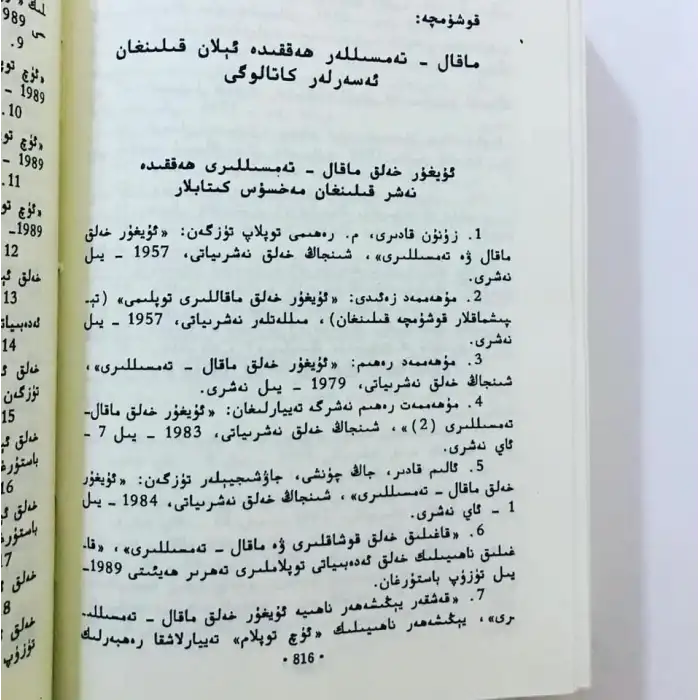 قوشۇمچە:
ماقال ـ تەمسىللەر ھەققىدە ئېلان قىلىنغان
ئەسەرلەر كاتالوگى
ئۇيغۇر خەلق ماقال ـ تەمسىللىرى ھەققىدە
نەشر قىلىنغان مەخسۇس كىتابلار
1. زۇنۇن قادىرى، م. رەھىمى توپلاپ تۈزگەن: «ئۇيغۇر خەلق
ماقال ۋە تەمسىللىرى»، شىنجاڭ خەلق نەشرىياتى، 1957 ـ يىل
نەشرى.
2. مۇھەممەد زەئىدى: «ئۇيغۇر خەلق ماقاللىرى توپلىمى» (تېـ
پىشماقلار قوشۇمچە قىلىنغان)، مىللەتلەر نەشرىياتى، 1957 ـ يىل
نەشرى.
3. مۇھەممەد رەھىم: «ئۇيغۇر خەلق ماقال ـ تەمسىللىرى»،
شىنجاڭ خەلق نەشرىياتى، 1979 ـ يىل نەشرى.
4. مۇھەممەت رەھىم نەشرگە تەييارلىغان: «ئۇيغۇر خەلق ماقال-
تەمسىللىرى (2)»، شىنجاڭ خەلق نەشرىياتى، 1983 ـ يىل 7 ـ
ئاي نەشرى.
5. ئالىم قادىر، جاڭ چۈنشى، جاۋشىجيېلەر تۈزگەن: «ئۇيغۇر
خەلق ماقال ـ تەمسىللىرى»، شىنجاڭ خەلق نەشرىياتى، 1984 ـ يىل
1 ـ ئاي نەشرى.
6. «قاغىلىق خەلق قوشاقلىرى ۋە ماقال ـ تەمسىللىرى»، «قاـ
غىلىق ناھىيىلىك خەلق ئەدەبىياتى توپلاملىرى تەھرىر ھەيئىتى 1989ـ
يىل تۈزۈپ باستۇرغان.
7. «قەشقەر يېڭىشەھەر ناھىيە ئۇيغۇر خەلق ماقال ـ تەمسىللىـ
رى»، يېڭىشەھەر ناھىيىلىك «ئۈچ توپلام» تەييارلاشقا رەھبەرلىك
· 816 ·